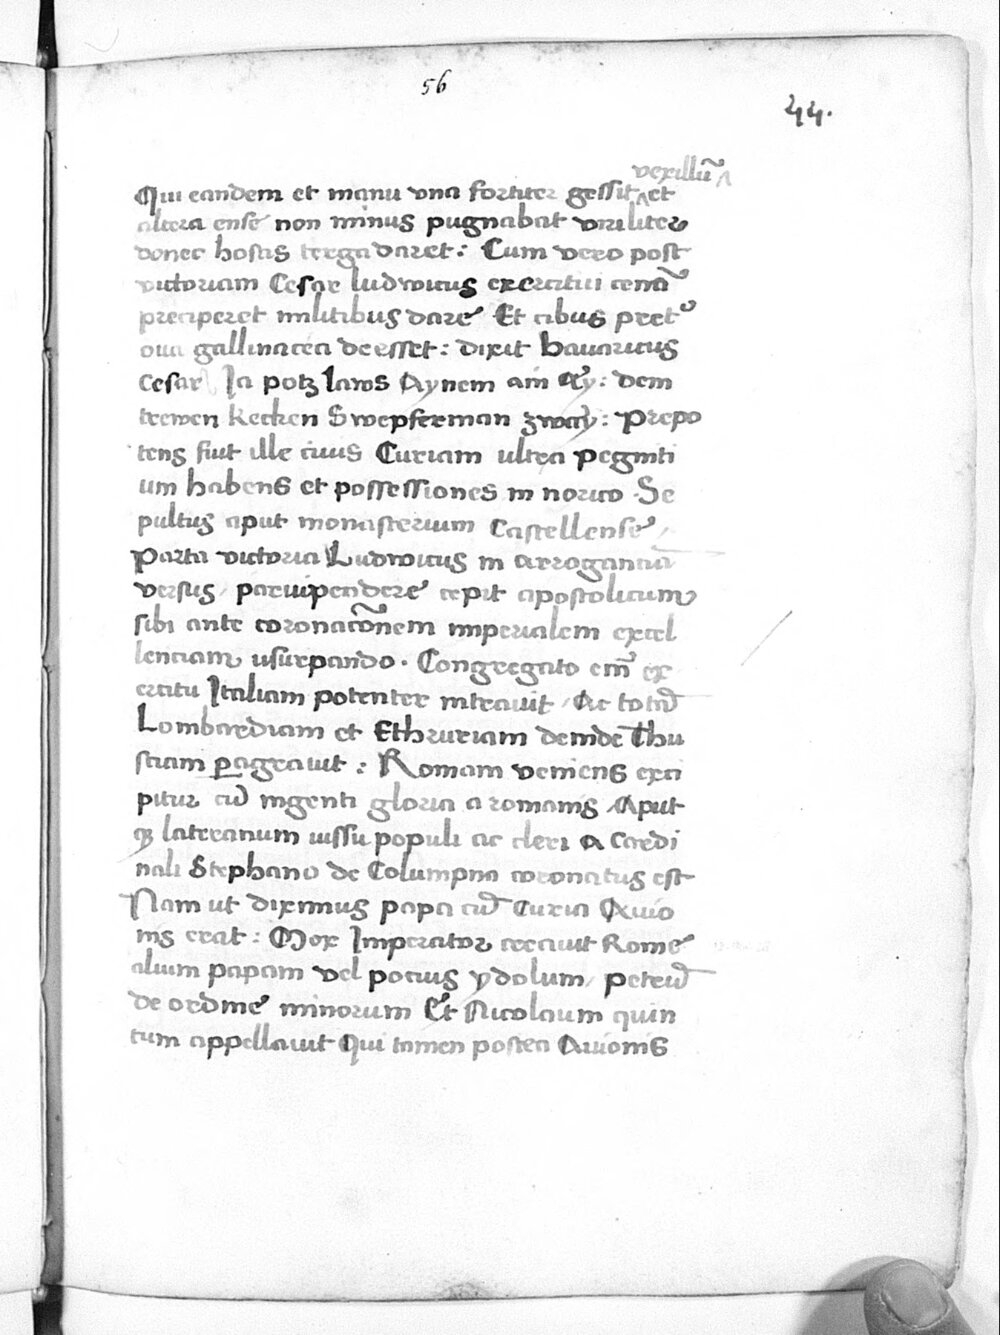 56
44.
vexillu̅
Qui eandem et manu vna fortiter gessit ^ et
altera ense non minus pugnabat viriliter
donec hostis terga daret : Cum vero post
victoriam Cesar ludwicus exercitui cena̅
preciperet militibus dare Et cibus pret'
oua gallinacea deesset : dixit bauaricus
Cesar Ja potz laws Aynem ain Ay : dem
trewen kecken Swepferman zway : Prepo
tens fuit ille cuius Curiam ultra pegniti
um habens et possessiones in norico . Se
pultus aput monasterium Castellense
Parta victoria Ludwicus in arroganciam
versus / paruipendere cepit apostolicum
sibi ante corona̅conem imperialem excel
lenciam usurpando . Congregato em̅ ex
ercitu Italiam potenter intrauit / Ac tota̅
Lombardiam et Ethruriam deinde Thu
sciam ꝑagrauit : Romam veniens exci
pitur cu̅ ingenti gloria a romanis / Aput
qꝫ lateranum iussu populi ac cleri A Cardi
nali Stephano de Columpna coronatus est
Nam ut diximus papa cu̅ Curia Auio
nis erat : Mox Imperator creauit Rome
alium papam vel pocius ydolum / petru̅
de ordine minorum Et Nicolaum quin
tum appellauit Qui tamen postea Auionis